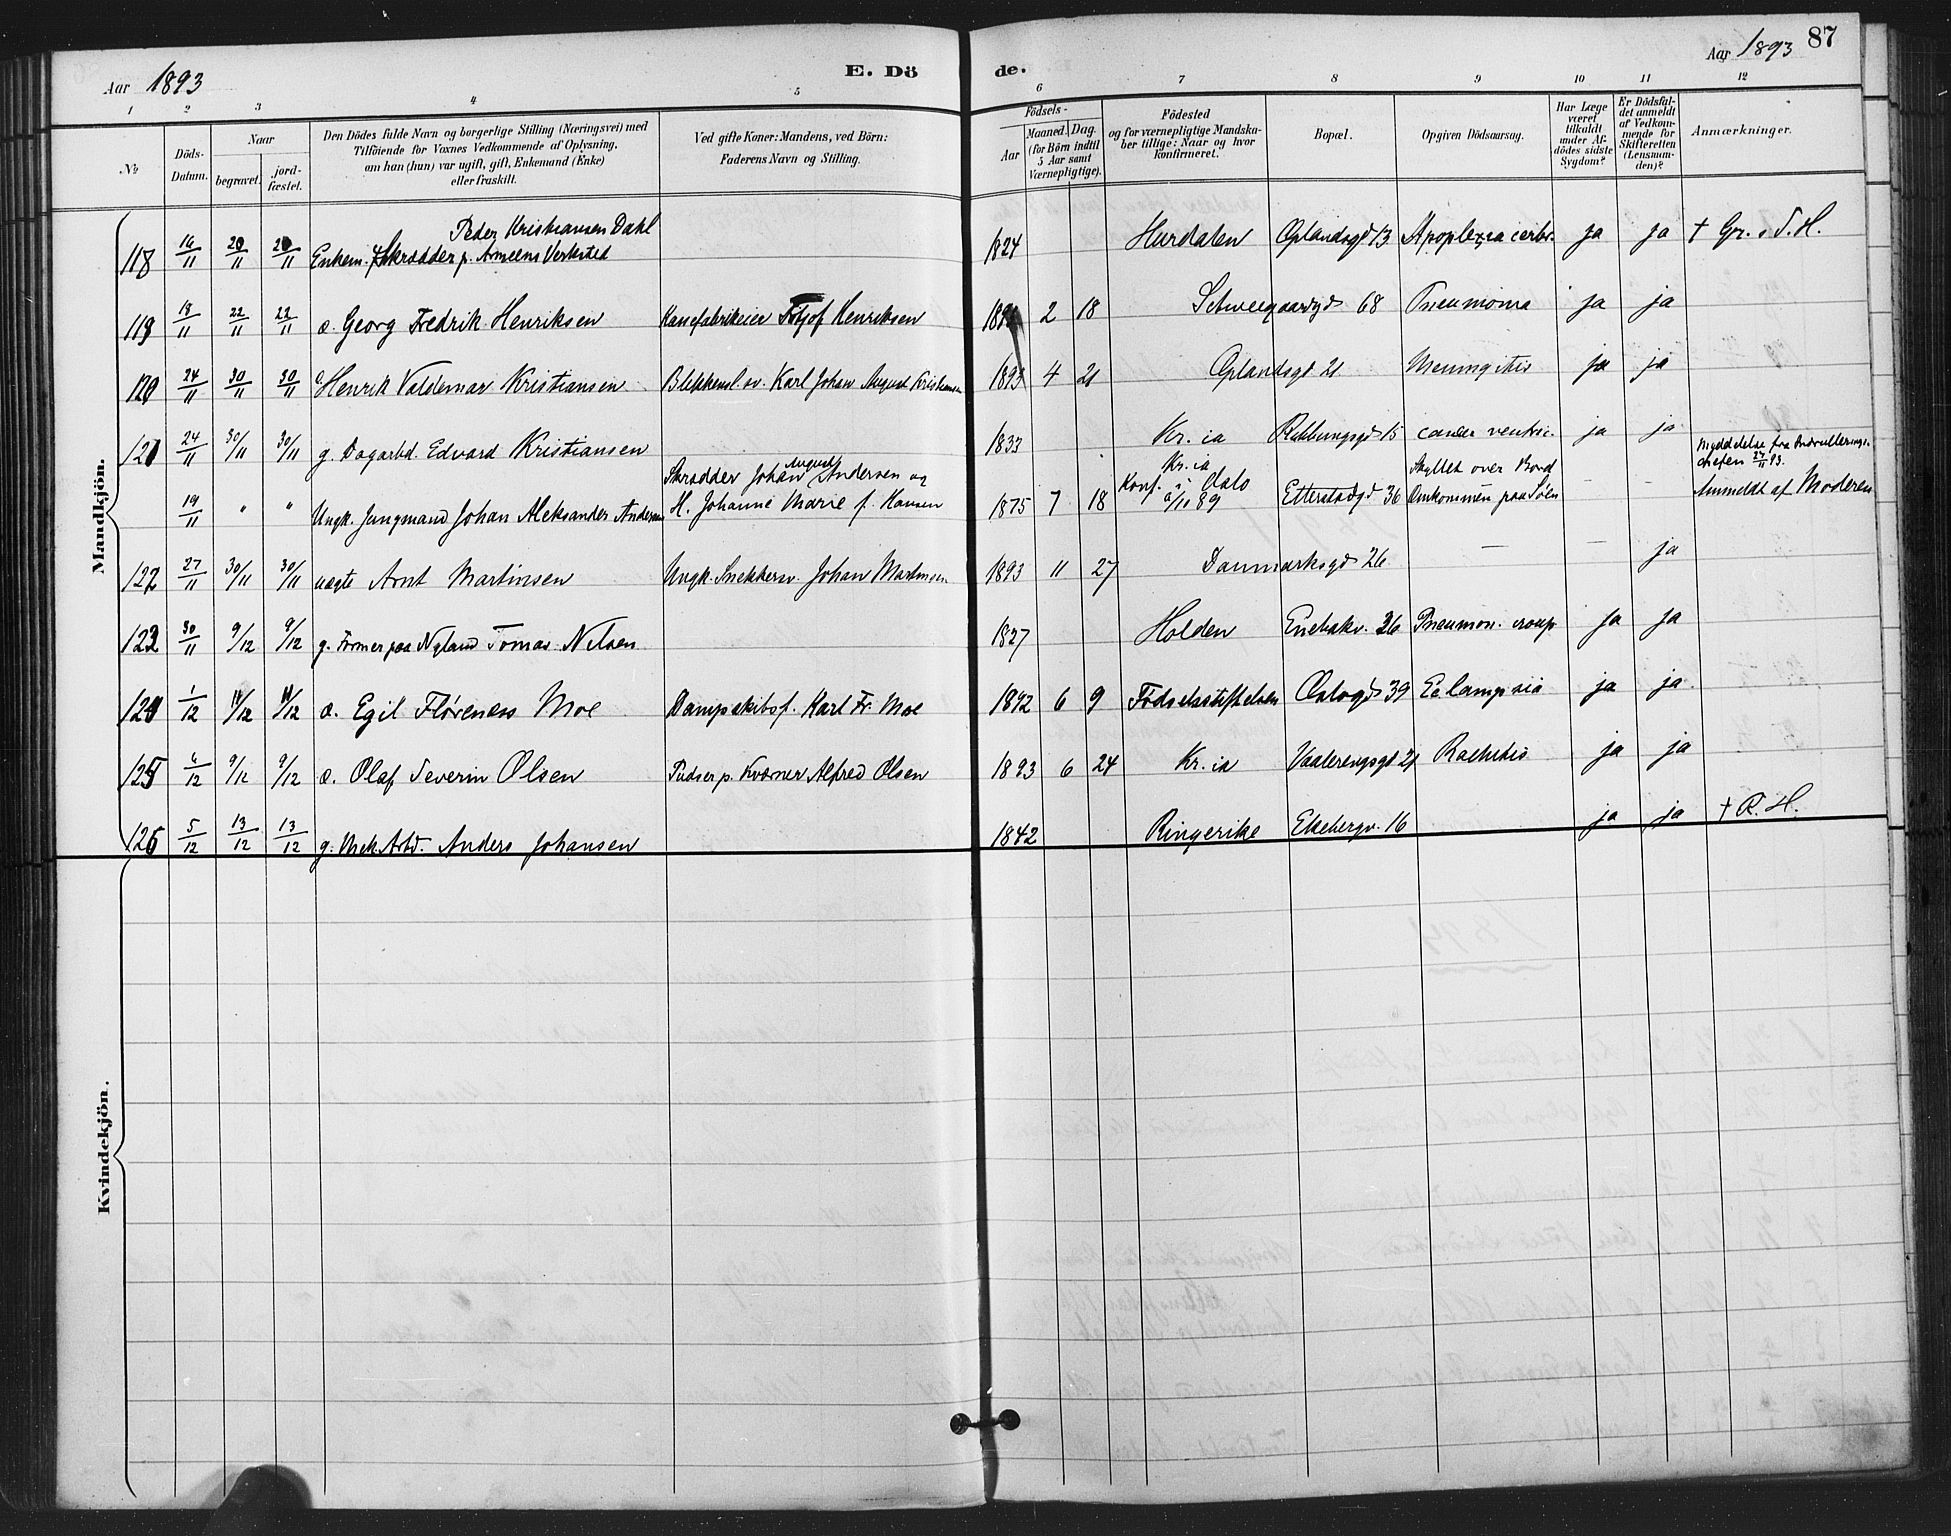 Aar 1893
E. Dö
de.
Aar 1893
87
1 2 3 4 5 6 7 8 9 10 11 12
No
Döds-Datum.
Naar
begravet.
jord-fæstet.
Den Dödes fulde Navn og borgerlige Stilling (Næringsvei) med
Tilföiende for Voxnes Vedkommende af Oplysning,
om han (hun) var ugift, gift, Enkemand (Enke)
eller fraskilt.
Ved gifte Koner: Mandens, ved Börn:
Faderens Navn og Stilling.
Födsels-
Aar
Maaned. Dag.
(for Börn indtil
5 Aar samt
Værnepligtige).
Födested
og for værnepligtige Mandska-
ber tillige: Naar og hvor
konfirmeret.
Bopæl.
Opgiven Dödsaarsag.
Har Læge
været
tilkaldt
under Af-
dödes sidste
Sygdom?
Er Dödsfal-
det anmeldt
af Vedkom-
mende for
Skifteretten
(Lensman-
den)?
Anmærkninger.
Mandkjön.
Peder Kristiansen Dahl
118 16/11 20/11 20/11 Enkem. Skrædder p. Armeens Verksted 1824 Hurdalen Oplandsgd 13 Apoplexia cerbr. ja ja † Gr. s. S. H.
119 18/11 22/11 22/11 æ. Georg Fredrik Henriksen Fritjof Henriksen 2 18 Schweegaardgd 68 Pneumonia ja ja
120 24/11 30/11 30/11 æ Henrik Valdemar Kristiansen Blikkensl. sv. Karl Johan August Kristiansen 1893 4 21 Oplandsgd 21 Meningitis ja ja
121 24/11 30/11 30/11 g. Dagarbd. Edvard Kristiansen 1833 Kr. ia 15 cancer ventric. ja ja
Skrædder Johan August Andersen og
Kr. ia
Skyllet over Bord
Meddelelse fra Indrullerings-
chefen 27/11 93.
19/11 " " Ungk. Jungmand Johan Aleksander Andersen H. Johanne Marie f. Hansen 1875 7 18 Konf. i Oslo 6/10 89 Etterstadgd 36 Omkommen paa Söen — — Anmeldt af Moderen
122 27/11 30/11 30/11 uægte Arnt Martinsen Ungk. Snekkersv. Johan Martinsen 1893 11 27 Danmarksgd 26 — — ja
123 30/11 9/12 9/12 g. Former paa Nyland Tomas Nilsen 1827 Holden Enebakv. 26 Pneumon. croup ja ja
124 1/12 11/12 11/12 æ. Egil Flörenæs Moe Dampskibsf. Karl Fr. Moe 1892 6 9 Födselsstiftelsen Oslogd 39 Eclampsia ja ja
125 6/12 9/12 9/12 æ. Olaf Severin Olsen Pudser p. Kværner Alfred Olsen 1893 6 24 Kr. ia Vaalerengsgd 21 Rachitis ja ja
126 5/12 13/12 13/12 g. Mek. Arbd. Anders Johansen 1842 Ringerike Ekebergv. 16 ja ja † R. H.
Kvindekjön.